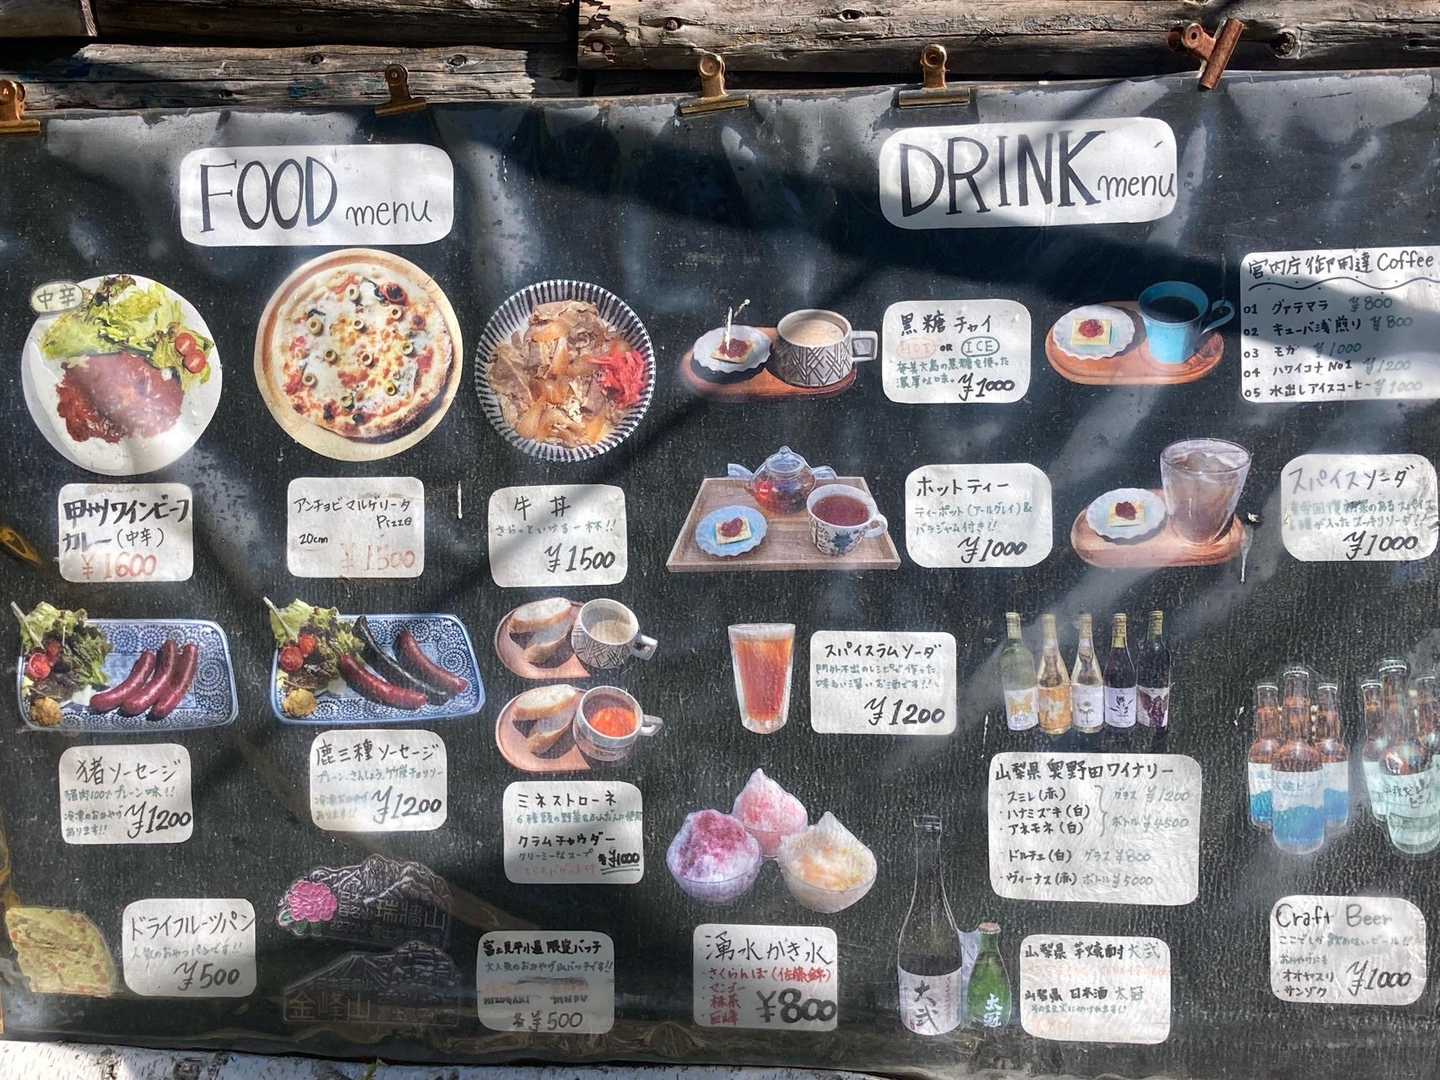 FOOD menu
DRINK menu
中辛
甲州ワインビーフ
カレー(中辛)
¥1600
アンチョビマルゲリータ
Pizza
20cm
¥1500
牛丼
¥1500
黒糖チャイ
HOT OR ICE
奄美大島の黒糖を使った
濃厚な味。
¥1000
宮内庁御用達 Coffee
01 グァテマラ ¥800
02 キューバ浅煎り ¥800
03 モカ ¥1000
04 ハワイコナ No1 ¥1200
05 水出しアイスコーヒー
ホットティー
ティーポット(アールグレイ)&
バラジャム付き!!
¥1000
スパイスソーダ
¥1000
猪ソーセージ
猪肉100%プレーン味!!
冷凍のおみやげ
あります!!
¥1200
鹿三種ソーセージ
冷凍おみやげ
あります!!
¥1200
ミネストローネ
クラムチャウダー
クリーミーなスープ
各¥1000
スパイスラムソーダ
門外不出のレシピで作った
味わい深いお酒です!!
¥1200
山梨県 奥野田ワイナリー
・スミレ(赤)
・ハナミズキ(白)
・アネモネ(白)
グラス ¥1200
ボトル ¥4500
・ドルチェ(白) グラス ¥800
・ヴィーナス(赤) ボトル ¥5000
ドライフルーツパン
人気のおやつパンです!!
¥500
瑞牆山
金峰山
富士見平小屋 限定バッチ
大人気のおみやげ山バッチです!!
各¥500
湧水かき氷
・さくらんぼ(佐藤錦)
・マンゴー
・抹茶
・巨峰
¥800
大弐
太冠
山梨県 芋焼酎 大弐
山梨県 日本酒 太冠
Craft Beer
ここでしか飲めないビール!!
おみやげにも
・オオヤスリ
・サンゾク
¥1000